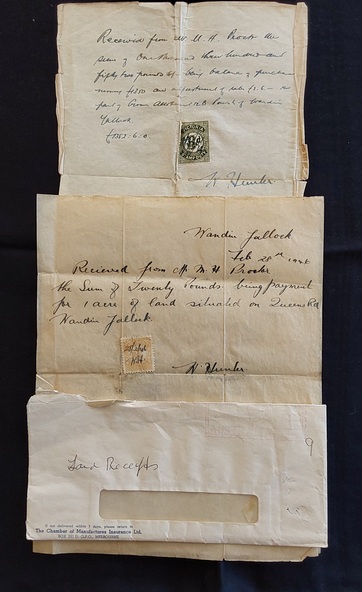 Received from Mr M. H. Procter the
sum of One thousand three hundred and
fifty two pounds being balance of purchase
money £1350 and adjustment of rates £2.6 -
part of Crown allotment 12B Parish of Wandin
Yallock
£1352:6:0.
W Hunter
Wandin Yallock
Feb 28th
Recieved from Mr M H Procter
the Sum of Twenty Pounds being payment
for 1 acre of land situated on Queens Rd
Wandin Yallock.
W Hunter.
Land Receipts
9
If not delivered within 7 days, please return to
The Chamber of Manufactures Insurance Ltd.
MELBOURNE